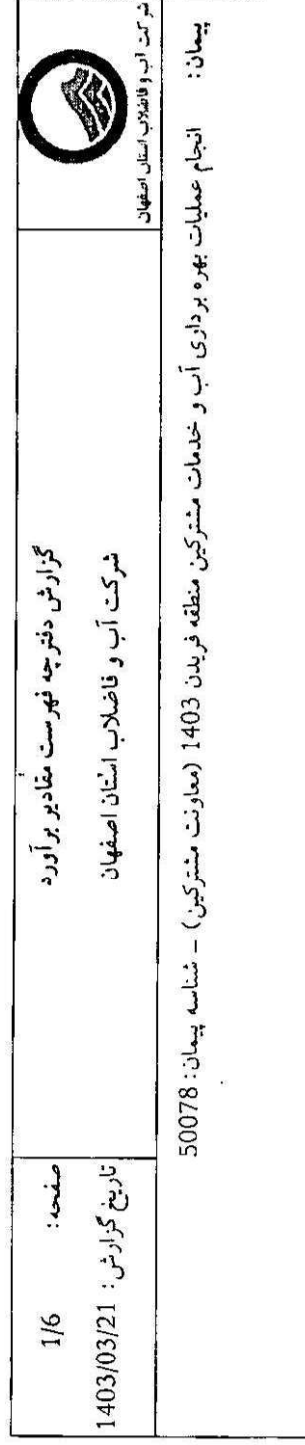 شرکت آب و فاضلاب استان اصفهان
گزارش دفترچه فهرست مقادیر برآورد
شرکت آب و فاضلاب استان اصفهان
صفحه: 1/6
تاریخ گزارش: 1403/03/21
پیمان: انجام عملیات بهره برداری آب و خدمات مشترکین منطقه فریدن 1403 (معاونت مشترکین) - شناسه پیمان: 50078